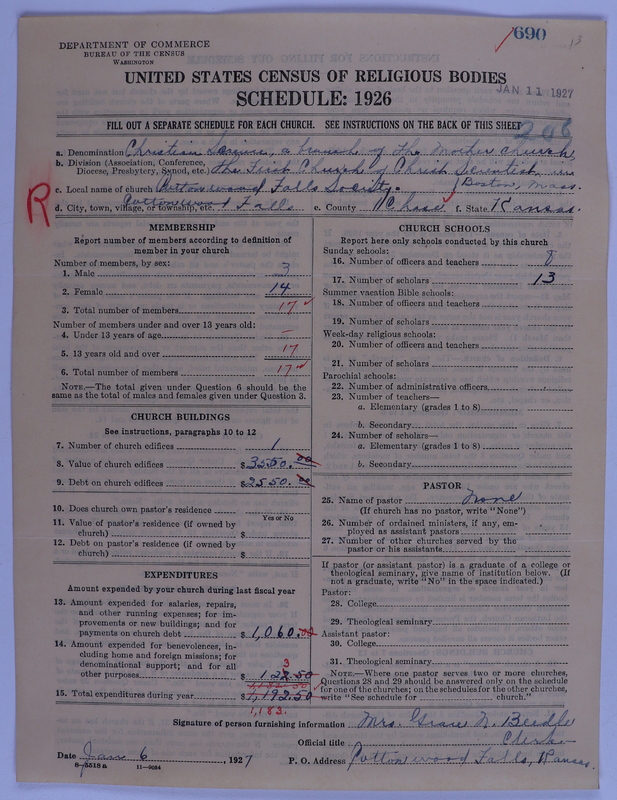 690
13
DEPARTMENT OF COMMERCE
BUREAU OF THE CENSUS
WASHINGTON
UNITED STATES CENSUS OF RELIGIOUS BODIES
JAN 11 1927
SCHEDULE: 1926
FILL OUT A SEPARATE SCHEDULE FOR EACH CHURCH. SEE INSTRUCTIONS ON THE BACK OF THIS SHEET
R
a. Denomination Christian Science, a branch of The Mother Church,
b. Division (Association, Conference, Diocese, Presbytery, Synod, etc.) The First Church of Christ Scientist, in
Boston, Mass.
c. Local name of church Cottonwood Falls Society.
d. City, town, village, or township, etc. Cottonwood Falls e. County Chase f. State Kansas.
MEMBERSHIP
Report number of members according to definition of
member in your church
Number of members, by sex:
1. Male 3
2. Female 14
3. Total number of members 17
Number of members under and over 13 years old:
4. Under 13 years of age —
5. 13 years old and over 17
6. Total number of members 17
NOTE.—The total given under Question 6 should be
same as the total of males and females given under Question 3.
CHURCH BUILDINGS
See instructions, paragraphs 10 to 12
7. Number of church edifices 1
8. Value of church edifices $3550.00
9. Debt on church edifices $2550.00
10. Does church own pastor's residence
Yes or No
11. Value of pastor's residence (if owned by
church) $
12. Debt on pastor's residence (if owned by
church) $
EXPENDITURES
Amount expended by your church during last fiscal year
13. Amount expended for salaries, repairs,
and other running expenses; for im-
provements or new buildings; and for
payments on church debt $1,060.00
14. Amount expended for benevolences, in-
cluding home and foreign missions; for
denominational support; and for all
3
other purposes $122.50
15. Total expenditures during year $1,192.50
1,183.
CHURCH SCHOOLS
Report here only schools conducted by this church
Sunday schools:
16. Number of officers and teachers 8
17. Number of scholars 13
Summer vacation Bible schools:
18. Number of officers and teachers
19. Number of scholars
Week-day religious schools:
20. Number of officers and teachers
21. Number of scholars
Parochial schools:
22. Number of administrative officers
23. Number of teachers—
a. Elementary (grades 1 to 8)
b. Secondary
24. Number of scholars—
a. Elementary (grades 1 to 8)
b. Secondary
PASTOR
25. Name of pastor None
(If church has no pastor, write "None")
26. Number of ordained ministers, if any, em-
ployed as assistant pastors
27. Number of other churches served by the
pastor or his assistants
If pastor (or assistant pastor) is a graduate of a college or
theological seminary, give name of institution below. (If
not a graduate, write "No" in the space indicated.)
Pastor:
28. College
29. Theological seminary
Assistant pastor:
30. College
31. Theological seminary
NOTE.—Where one pastor serves two or more churches,
Questions 28 and 29 should be answered only on the schedule
for one of the churches; on the schedules for the other churches,
write "See schedule for church."
Signature of person furnishing information Mrs. Grace N. Beedle
Official title Clerk
Date Jan 6, 1927 P. O. Address Cottonwood Falls, Kansas.
8-5518a 11-9034